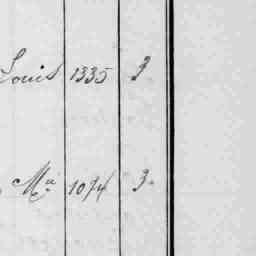 Louis 1335 3
Ma 1074 3